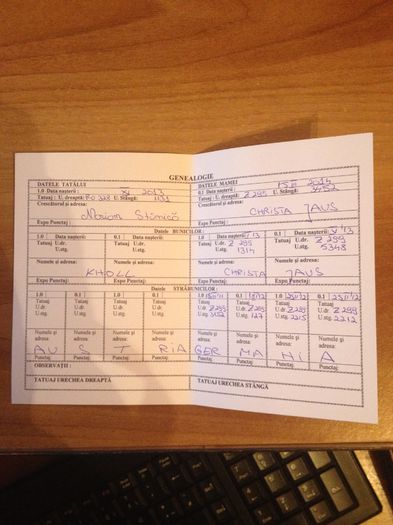 GENEALOGIE
DATELE TATĂLUI
1.0 Data nașterii : XI 2013
Tatuaj : U. dreaptă: RO 328 U. Stângă: 1131
Crescătorul și adresa:
Marian
Expo Punctaj :
DATELE MAMEI
0.1 Data nașterii : 15.II 2014
Tatuaj : U. dreaptă: Z 299 U. Stângă: 3452
Crescătorul și adresa:
CHRISTA JAUS
Expo Punctaj :
Datele BUNICILOR:
1.0 Data nașterii:
Tatuaj U.dr.
U.stg.
Numele și adresa:
KHOLL
Expo Punctaj:
0.1 Data nașterii:
Tatuaj U.dr.
U.stg.
Numele și adresa:
Expo Punctaj:
1.0 Data nașterii: 13
Tatuaj U.dr. Z 299
U.stg. 1314
Numele și adresa:
CHRISTA
Expo Punctaj:
0.1 Data nașterii: V 13
Tatuaj U.dr. Z 299
U.stg. 5348
Numele și adresa:
JAUS
Expo Punctaj:
Datele STRĂBUNICILOR:
1.0 0.1 1.0 0.1 1.0 0.1 1.0 0.1
Tatuaj Tatuaj Tatuaj Tatuaj Tatuaj Tatuaj Tatuaj Tatuaj
U.dr. U.dr. U.dr. U.dr. U.dr. Z 299 U.dr. Z 299 U.dr. Z 299 U.dr. Z 299
U.stg. U.stg. U.stg. U.stg. U.stg. U.stg. 127 U.stg. 2215 U.stg. 2212
Numele și adresa: Numele și adresa: Numele și adresa: Numele și adresa: Numele și adresa: Numele și adresa: Numele și adresa: Numele și adresa:
AU S T RIA GER MA NI A
Punctaj: Punctaj: Punctaj: Punctaj: Punctaj: Punctaj: Punctaj: Punctaj:
OBSERVAȚII :
TATUAJ URECHEA DREAPTĂ
TATUAJ URECHEA STÂNGĂ